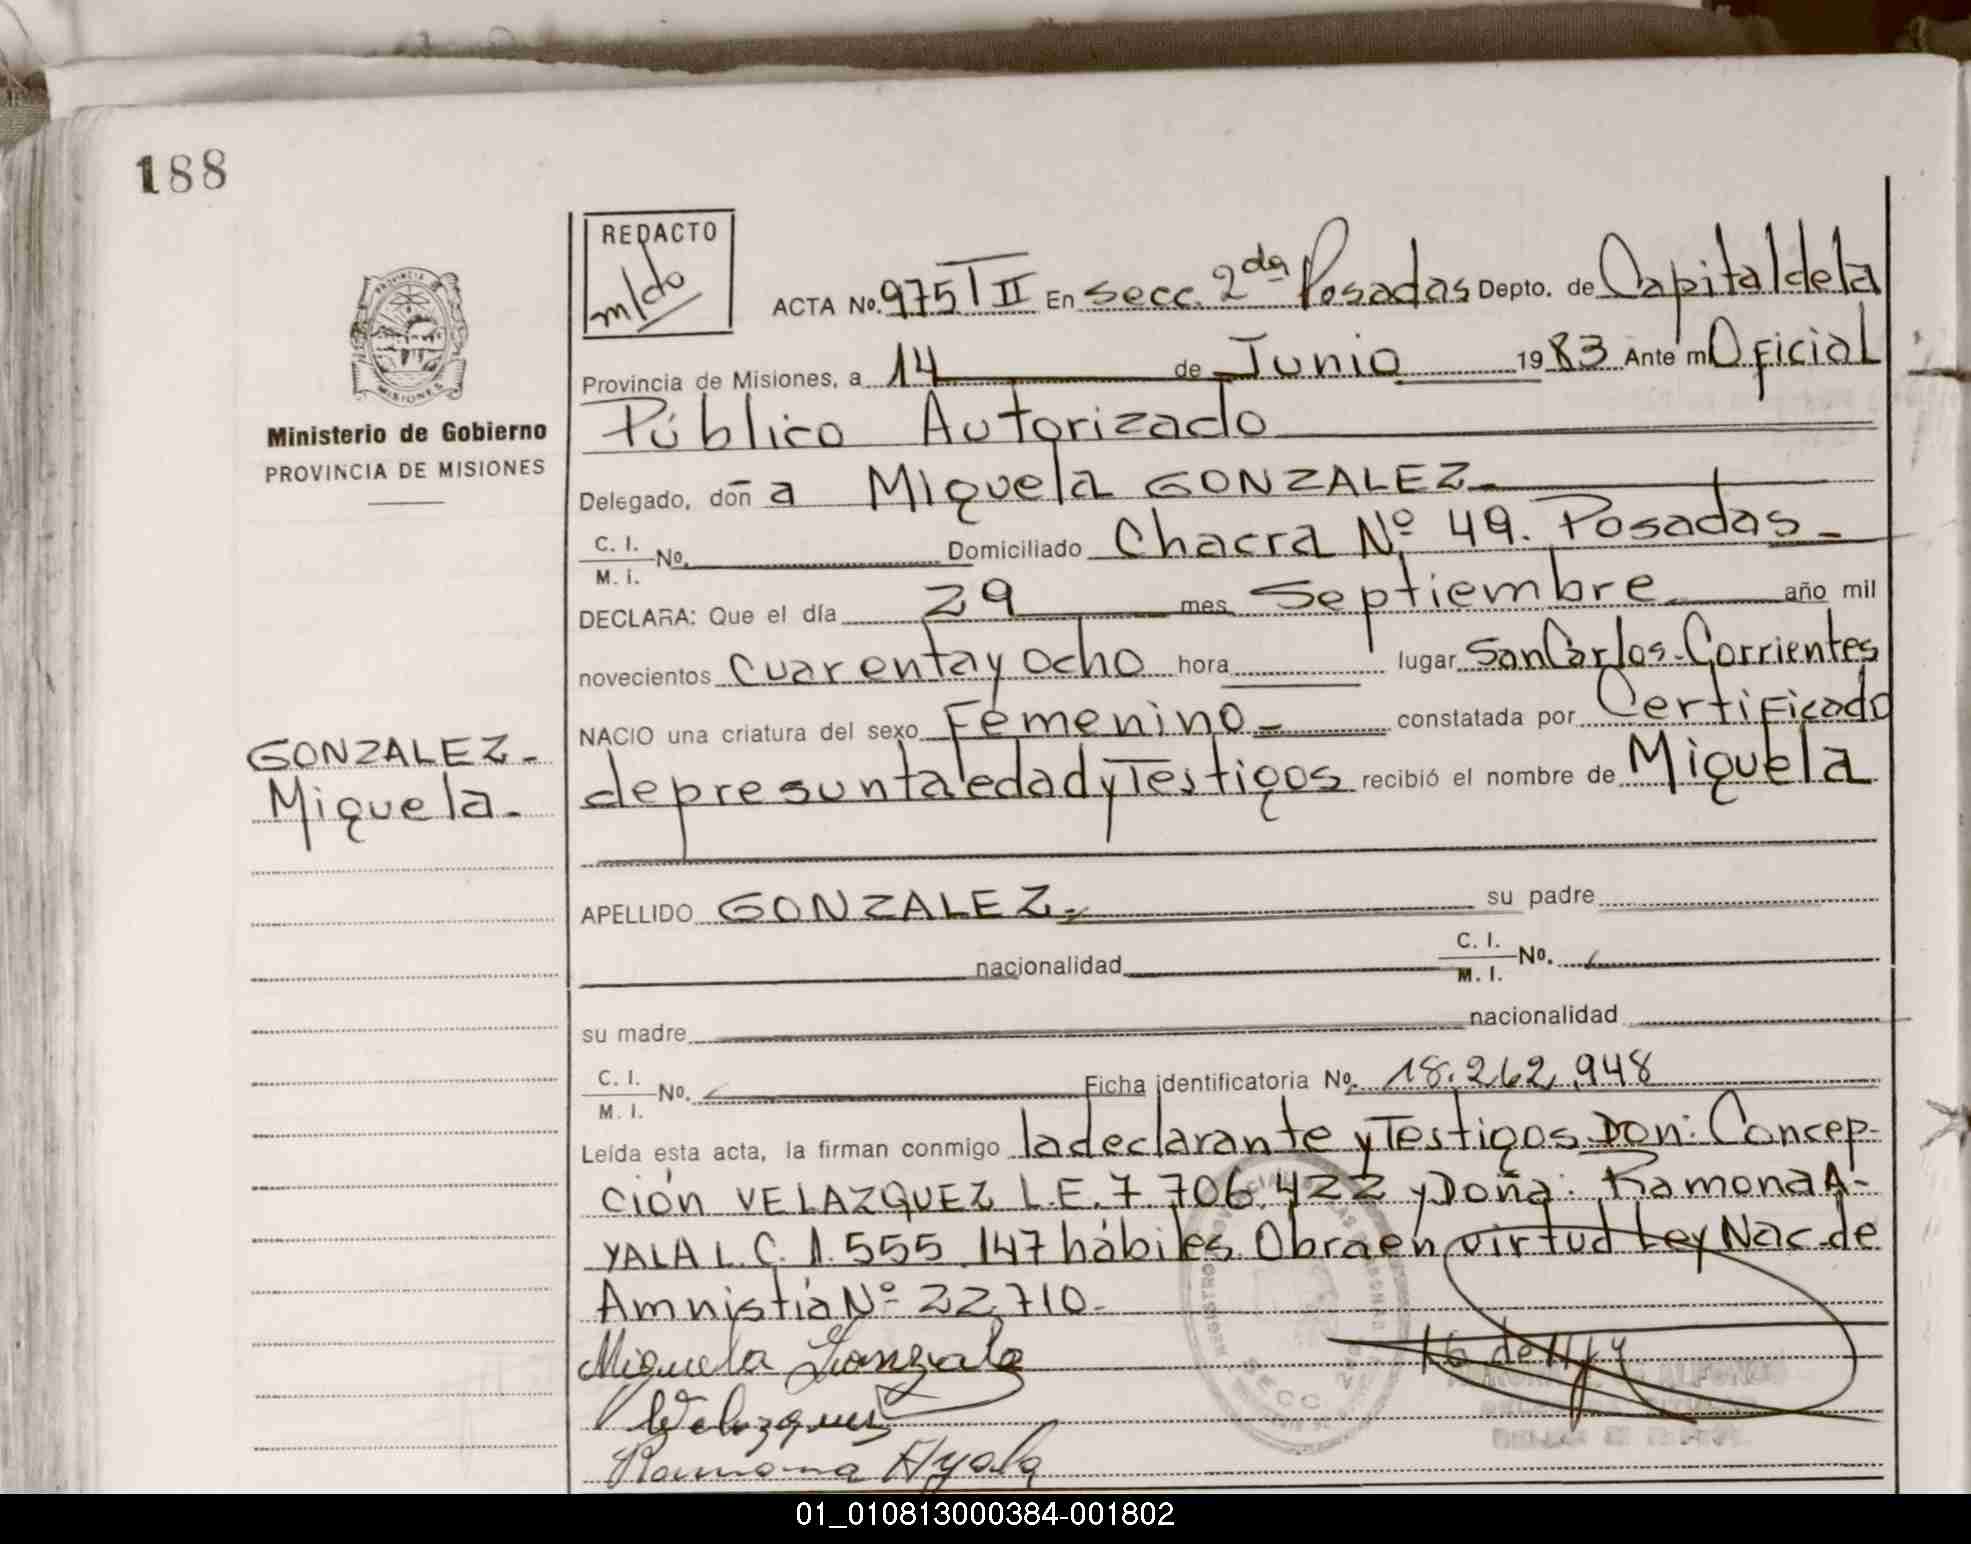 188
REDACTO
m/do
ACTA No. 975 T II En secc. 2da Posadas Depto. de Capital de la
Provincia de Misiones, a 14 de Junio 1983 Ante mi Oficial
Público Autorizado
Ministerio de Gobierno
PROVINCIA DE MISIONES
Delegado, don a Miguela GONZALEZ
C. I. No. Domiciliado Chacra Nº 49. Posadas
M. i.
DECLARA: Que el día 29 mes Septiembre año mil
novecientos cuarenta y ocho hora lugar San Carlos-Corrientes
NACIO una criatura del sexo Femenino constatada por Certificado
GONZALEZ-
Miguela-
de presunta edad y Testigos recibió el nombre de Miguela
APELLIDO GONZALEZ su padre
nacionalidad C. I. No.
M. I.
su madre nacionalidad
C. I. No. Ficha identificatoria No. 18.262.948
M. I.
Leída esta acta, la firman conmigo la declarante y Testigos Don: Concep-
ción VELAZQUEZ L.E. 7.706.422 y Doña: Ramona A-
YALA L.C. 1.555.147 hábiles. Obra en virtud Ley Nac. de
Amnistía Nº 22.710-
Miguela Gonzalez
Velazquez
Ramona Ayala
SECC 2
01_010813000384-001802